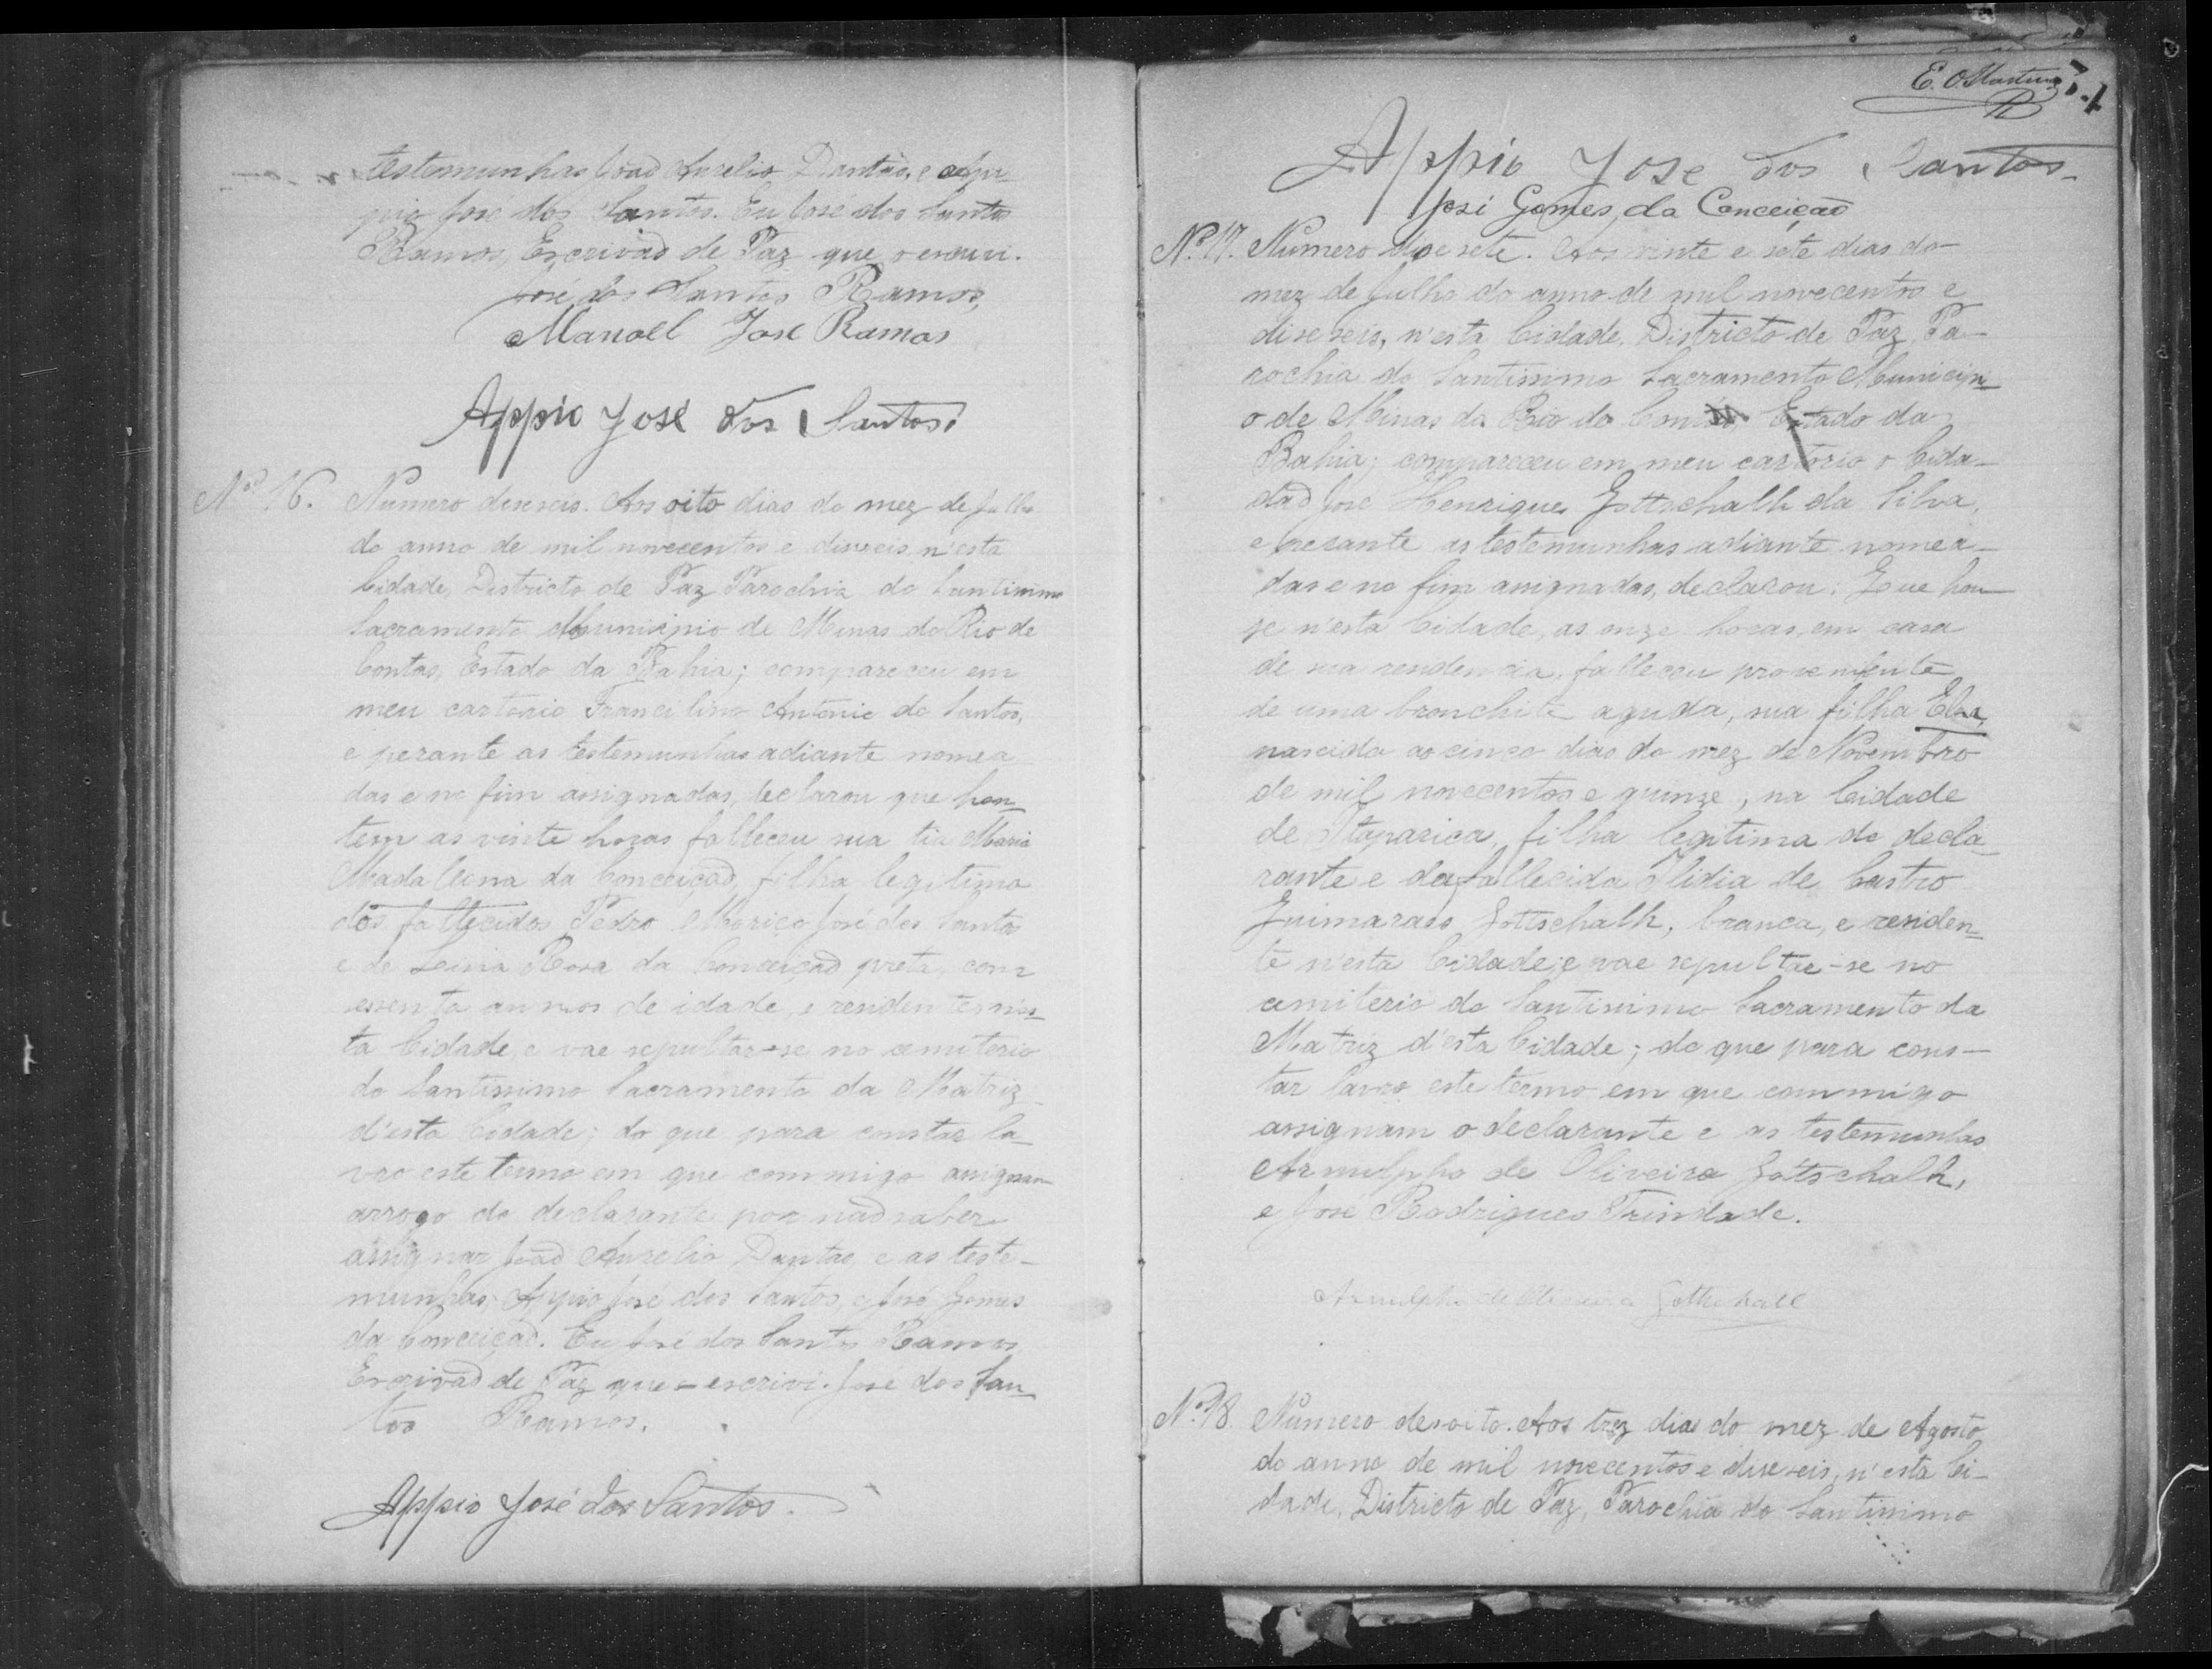 testemunhas João Aurelio Dantas, e App
pio José dos Santos. Eu José dos Santos
Ramos, Escrivão de Paz que o escrivi.
José dos Santos Ramos,
Manoel José Ramos
Appio José dos Santos
Nº 16. Numero deseseis. Aos oito dias do mez de Julho
do anno de mil novecentos e deseseis, n'esta
Cidade, Districto de Paz Parochia do Santissimo
Sacramento Municipio de Minas do Rio de
Contas, Estado da Bahia; compareceu em
meu cartorio Francilino Antonio do Santos,
e perante as testemunhas adiante nomea
das e no fim assignadas, declarou que hon_
tem as vinte horas falleceu sua tia Maria
Madallena da Conceição, filha legitima
dos fallecidos Pedro José dos Santos
e de Rosa da Conceição preta, com
sessenta annos de idade, e residente nes_
ta Cidade, e vae sepultar-se no cemiterio
do Santissimo Sacramento da Matriz
d'esta Cidade; do que para constar la_
vro este termo em que commigo assignam
arrogo do declarante por não saber
assignar João Aurelio Dantas, e as teste-
munhas Appio José dos Santos, e José Gomes
da Conceição. Eu José dos Santos Ramos
Escrivão de Paz que o escrivi. José dos San_
tos Ramos.
Appio José dos Santos.
E. O. Martins
Appio José dos Santos
José Gomes da Conceição
Nº 17. Numero desesete. Aos vinte e sete dias do
mez de Julho do anno de mil novecentos e
deseseis, n'esta Cidade, Districto de Paz, Pa-
rochia do Santissimo Sacramento Municipi_
o de Minas do Rio de Contas, Estado da
Bahia; compareceu em meu cartorio o Cida-
dão José Henrique Gottschalk da Silva,
e perante as testemunhas adiante nomea-
das e no fim assignadas, declarou: Que ho-
je n'esta Cidade, as onze horas, em casa
de sua residencia, falleceu proveniente
de uma bronchite aguda, sua filha Elza,
nascida ao cinco dias do mez de Novembro
de mil novecentos e quinze, na Cidade
de Itaparica, filha legitima do decla_
rante e da fallecida Ilidia de Castro
Guimaraes Gottschalk, branca, e residen_
te n'esta Cidade; e vae sepultar-se no
cemiterio do Santissimo Sacramento da
Matriz d'esta Cidade; do que para cons-
tar lavro este termo em que commigo
assignam o declarante e as testemunhas
Arnulpho de Oliveira Gottschalk,
e José Rodrigues Trindade.
Arnulpho de Oliveira Gottschalk
Nº 18. Numero desoito. Aos trez dias do mez de Agosto
do anno de mil novecentos e deseseis, n'esta Ci-
dade, Districto de Paz, Parochia do Santissimo